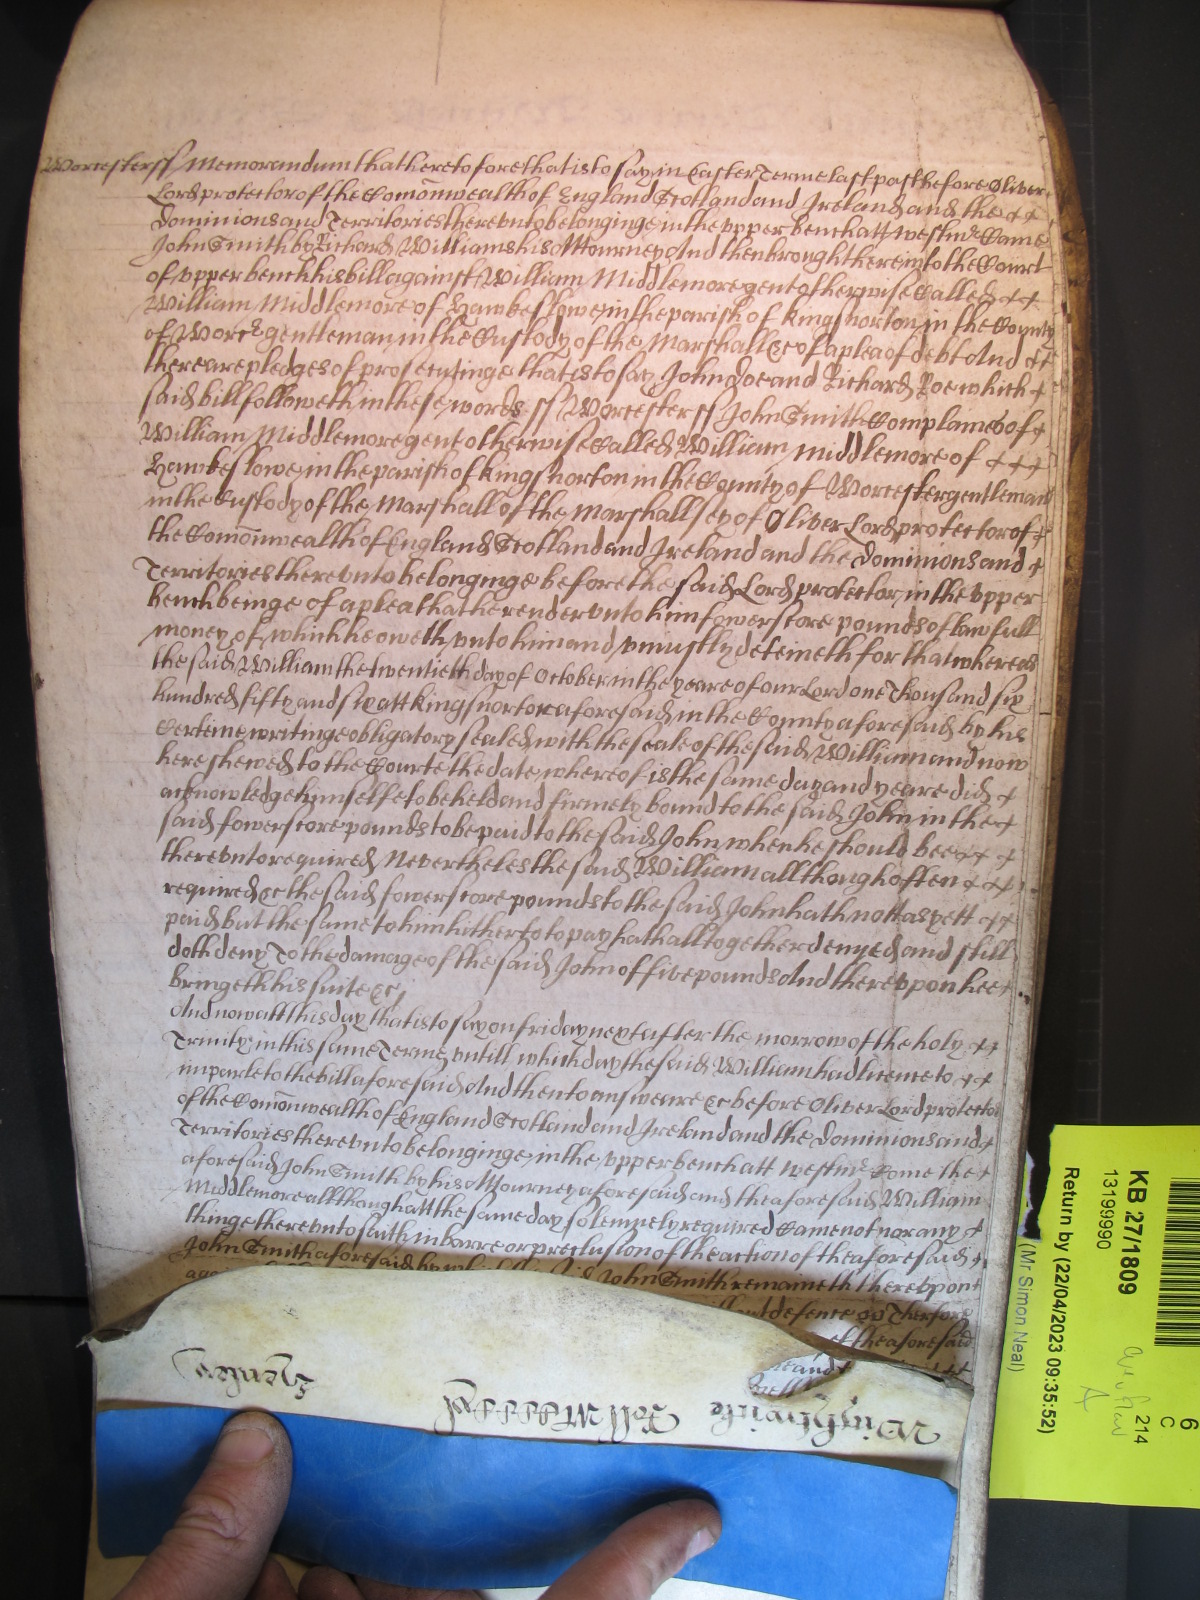 Worcester ss Memorandum that heretofore that is to say in Easter Terme last past before Oliver
Lord protector of the Com̄onwealth of England Scotland and Ireland and the
Dominions and Territories thereunto belonginge in the upper bench att Westmr Came
John Smith by Richard Williams his Attourney And then brought here into the Court
of upper bench his bill against William Middlemore gent otherwise Called
William Middlemore of Hawkeslowe in the parish of kings norton in the County
of Worcr gentleman in the Custody of the Marshall &c of a plea of debt And
there are pledges of prosecutinge that is to say John Doe and Richard Roe which
said bill followeth in these words ss Worcester ss John Smith Complaines of
William Middlemore gent otherwise Called William Middlemore of
Hawkeslowe in the parish of kings norton in the County of Worcester gentleman
in the Custody of the Marshall of the Marshallsey of Oliver Lord protector of
the Com̄onwealth of England Scotland and Ireland and the Dominions and
Territories thereunto belonginge before the said Lord protector in the upper
bench beinge of a plea that he render unto him fowerscore pounds of lawfull
money of which he oweth unto him and uniustly deteineth for that whereas
the said William the twentieth day of October in the yeare of our Lord one Thousand six
hundred fifty and six att kings norton aforesaid in the County aforesaid by his
Certeine writinge obligatory sealed with the seale of the said William and now
here shewed to the Courte the date whereof is the same day and yeare did
acknowledge himselfe to be held and firmely bound to the said John in the
said fowerscore pounds to be paid to the said John when he should bee
thereunto required Neverthelesthe said William allthough often
required &c the said fowerscore pounds to the said John hath nott as yett
paid but the same to him hitherto to pay hath alltogether denyed and still
doth deny To the damage of the said John of five pounds And thereupon hee
bringeth his suite &c
And now att this day that is to say on friday next after the morrow of the holy
Trinity in this same Terme untill which day the said William had licence to
imparle to the bill aforesaid And then to answeare &c before Oliver Lord protector
of the Com̄onwealth of England Scotland and Ireland and the Dominions and
Territories thereunto belonginge in the upper bench att Westmr Come the
aforesaid John Smith by his Attourney aforesaid and the aforesaid William
Middlemore allthough att the same day solemnely required Came not nor any
thinge thereunto saith in barre or preclusion of the action of the aforesaid
John Smith aforesaid by which the said John Smith remaineth thereupon
defence &c Therfore
of the aforesaid
Wightwicke Roll
KB 27/1809
13199990
Return by (22/04/2023 09:35:52)
(Mr Simon Neal)
6
C
214